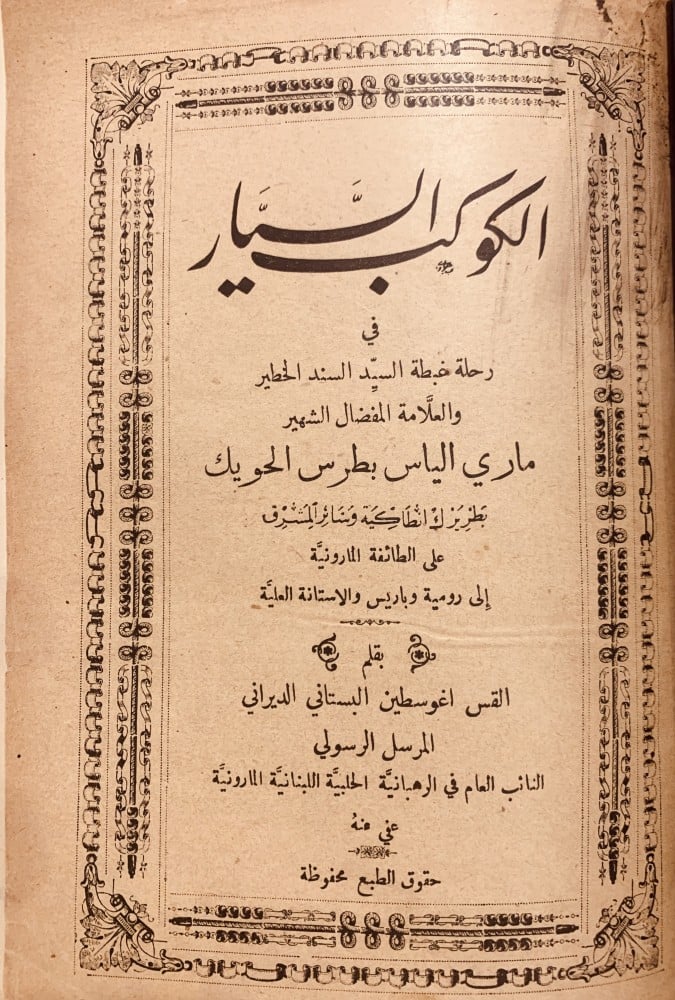 الكوكب السيَّار
في
رحلة غبطة السيِّد السند الخطير
والعلَّامة المفضال الشهير
ماري الياس بطرس الحويك
بطريرك انطاكية وسائر المشرق
على الطائفة المارونيَّة
إلى رومية وباريس والاستانة العليَّة
بقلم
القس اغوسطين البستاني الديراني
المرسل الرسولي
النائب العام في الرهبانيَّة الحلبيَّة اللبنانيَّة المارونيَّة
عفي عنهُ
حقوق الطبع محفوظة